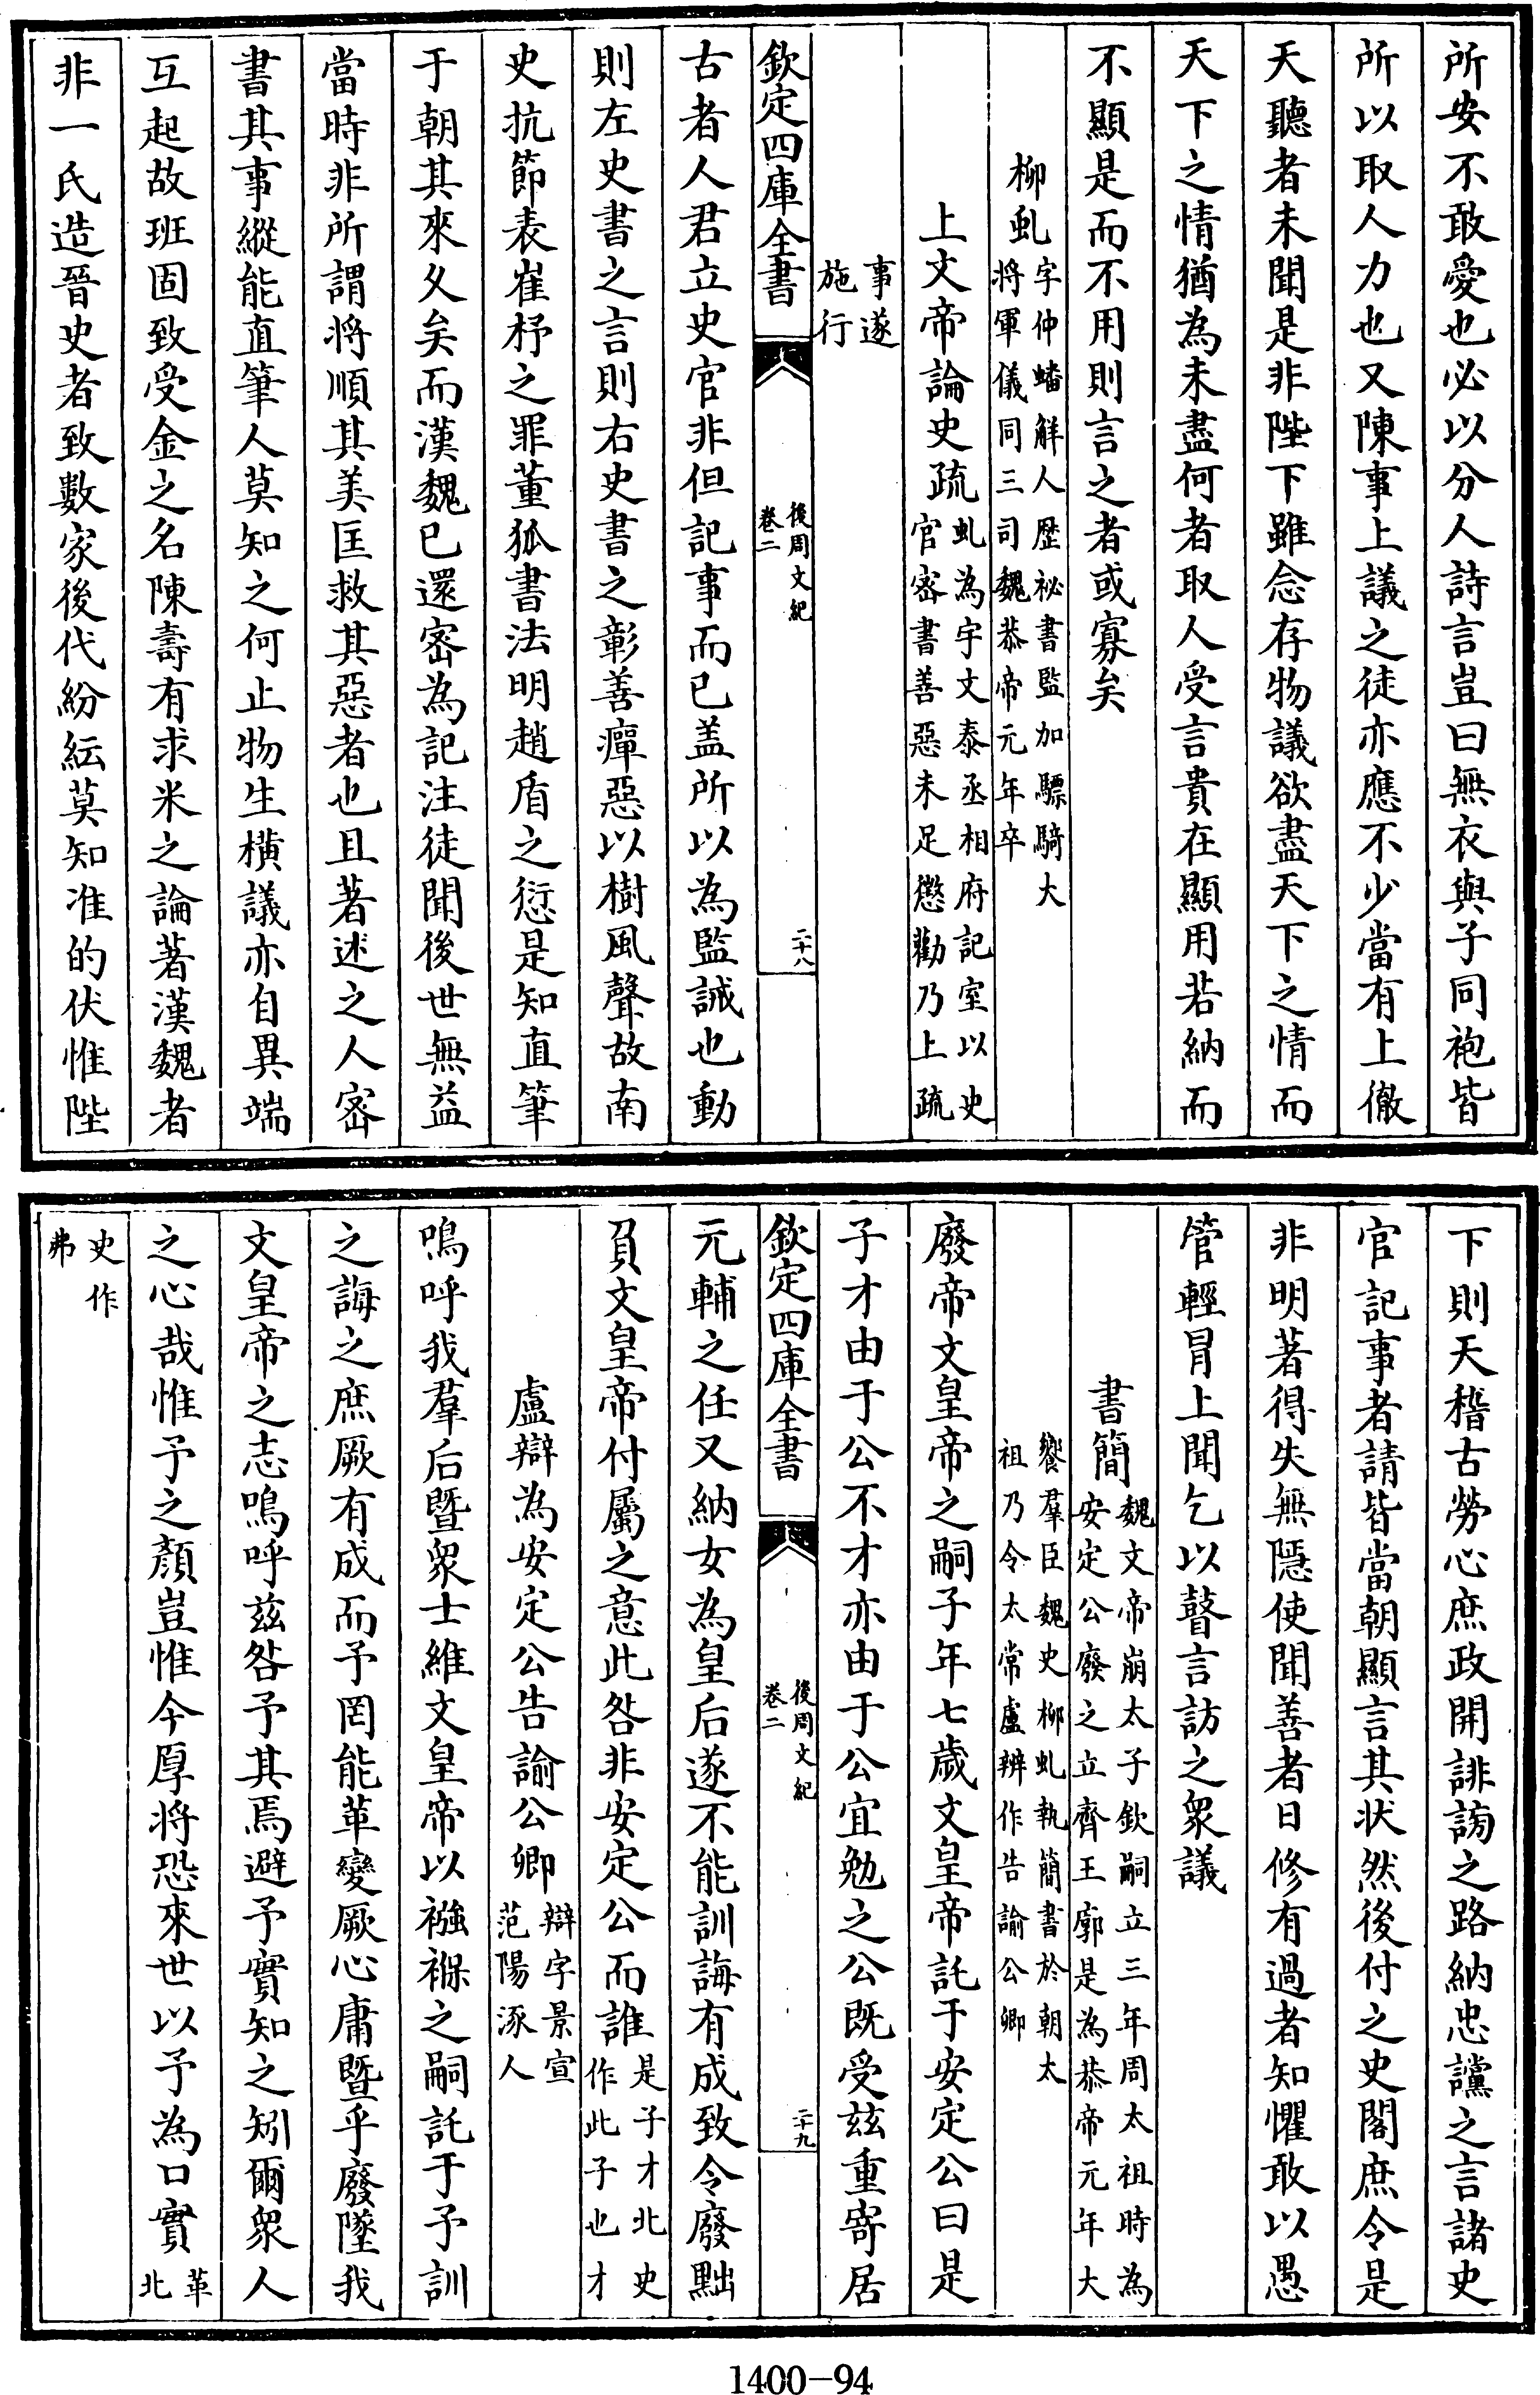 所安不敢愛也必以分人詩言豈曰無衣與子同袍皆
所以取人力也又陳事上議之徒亦應不少當有上徹
天聽者未聞是非陛下雖念存物議欲盡天下之情而
天下之情猶為未盡何者取人受言貴在顯用若納而
不顯是而不用則言之者或寡矣
柳虬字仲蟠解人歷祕書監加驃騎大
将軍儀同三司魏恭帝元年卒
上文帝論史疏虬為宇文泰丞相府記室以史
官密書善惡未足懲勸乃上疏
事遂
施行
欽定四庫全書
後周文紀
卷二
二十八
古者人君立史官非但記事而已盖所以為監誡也動
則左史書之言則右史書之彰善癉惡以樹風聲故南
史抗節表崔杼之罪董狐書法明趙盾之愆是知直筆
于朝其來久矣而漢魏已還密為記注徒聞後世無益
當時非所謂将順其美匡救其惡者也且著述之人密
書其事縱能直筆人莫知之何止物生橫議亦自異端
互起故班固致受金之名陳壽有求米之論著漢魏者
非一氏造晉史者致數家後代紛紜莫知准的伏惟陛
下則天稽古勞心庶政開誹謗之路納忠讜之言諸史
官記事者請皆當朝顯言其状然後付之史閣庶令是
非明著得失無隱使聞善者日修有過者知懼敢以愚
管輕冒上聞乞以瞽言訪之衆議
書簡魏文帝崩太子欽嗣立三年周太祖時為
安定公廢之立齊王廓是為恭帝元年大
饗羣臣魏史柳虬執簡書於朝太
祖乃令太常盧辨作告諭公卿
廢帝文皇帝之嗣子年七歲文皇帝託于安定公曰是
子才由于公不才亦由于公宜勉之公既受兹重寄居
欽定四庫全書
後周文紀
卷二
二十九
元輔之任又納女為皇后遂不能訓誨有成致令廢黜
負文皇帝付屬之意此咎非安定公而誰是子才北史
作此子也才
盧辯為安定公告諭公卿辯字景宣
范陽涿人
嗚呼我羣后暨衆士維文皇帝以襁褓之嗣託于予訓
之誨之庶厥有成而予罔能革變厥心庸暨乎廢墜我
文皇帝之志嗚呼兹咎予其焉避予實知之矧爾衆人
之心哉惟予之顏豈惟今厚将恐來世以予為口實革
北
史作
弗
1400-94